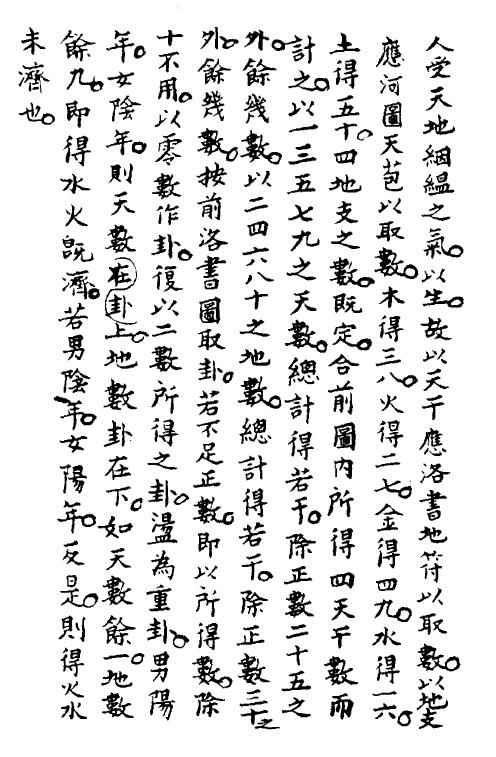 人受天地絪縕之氣。以生。故以天干應洛書地符以取數。以地支
應河圖天苞以取數。木得三八。火得二七。金得四九。水得一六。
土得五十。四地支之數。既定。合前圖内所得四天干數而
計之。以一三五七九之天數。總計得若干。除正數二十五之
外。餘幾數。以二四六八十之地數。總計得若干。除正數三十之
外。餘幾數。按前洛書圖取卦。若不足正數。即以所得數。除
十不用。以零數作卦。復以二數所得之卦。盪為重卦。男陽
年。女陰年。則天數在卦上。地數卦在下。如天數餘一。地數
餘九。即得水火既濟。若男陰年。女陽年。反是。則得火水
未濟也。